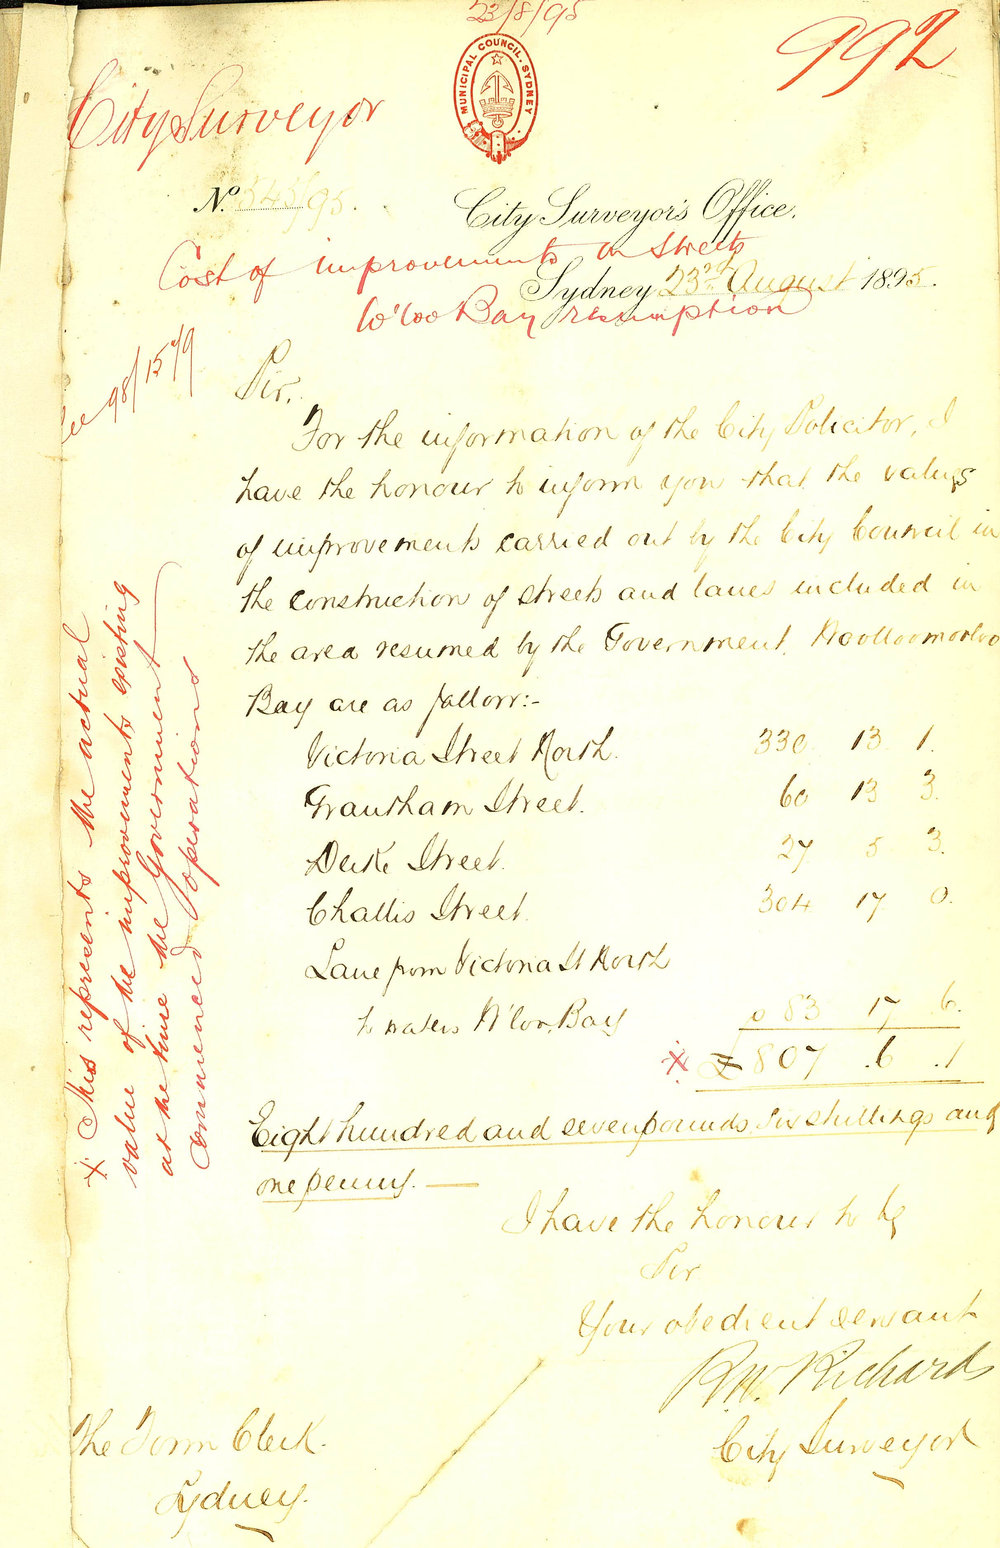 23/8/95
992
MUNICIPAL COUNCIL. SYDNEY
City Surveyor
No. 343/95.
City Surveyor's Office.
Cost of improvements in streets
Sydney 23rd August 1895.
W'loo Bay resumption
98/1579
Sir,
For the information of the City Solicitor, I
have the honour to inform you that the values
of improvements carried out by the City Council in
the construction of streets and lanes included in
the area resumed by the Government, Woolloomooloo
Bay are as follow:-
Victoria Street North. 330. 13. 1.
Grantham Street. 60 13 3.
Duke Street. 27 5 3.
Challis Street. 304 17 0.
Lane from Victoria St North
to waters W'loo. Bay 83 17 6.
x £807 .6 .1
Eight hundred and seven pounds six shillings and
one penny. —
I have the honour to be
Sir
Your obedient servant
R.W. Richards
City Surveyor
The Town Clerk.
Sydney.
x This represents the actual
value of the improvements existing
at the time the Government
commenced operations